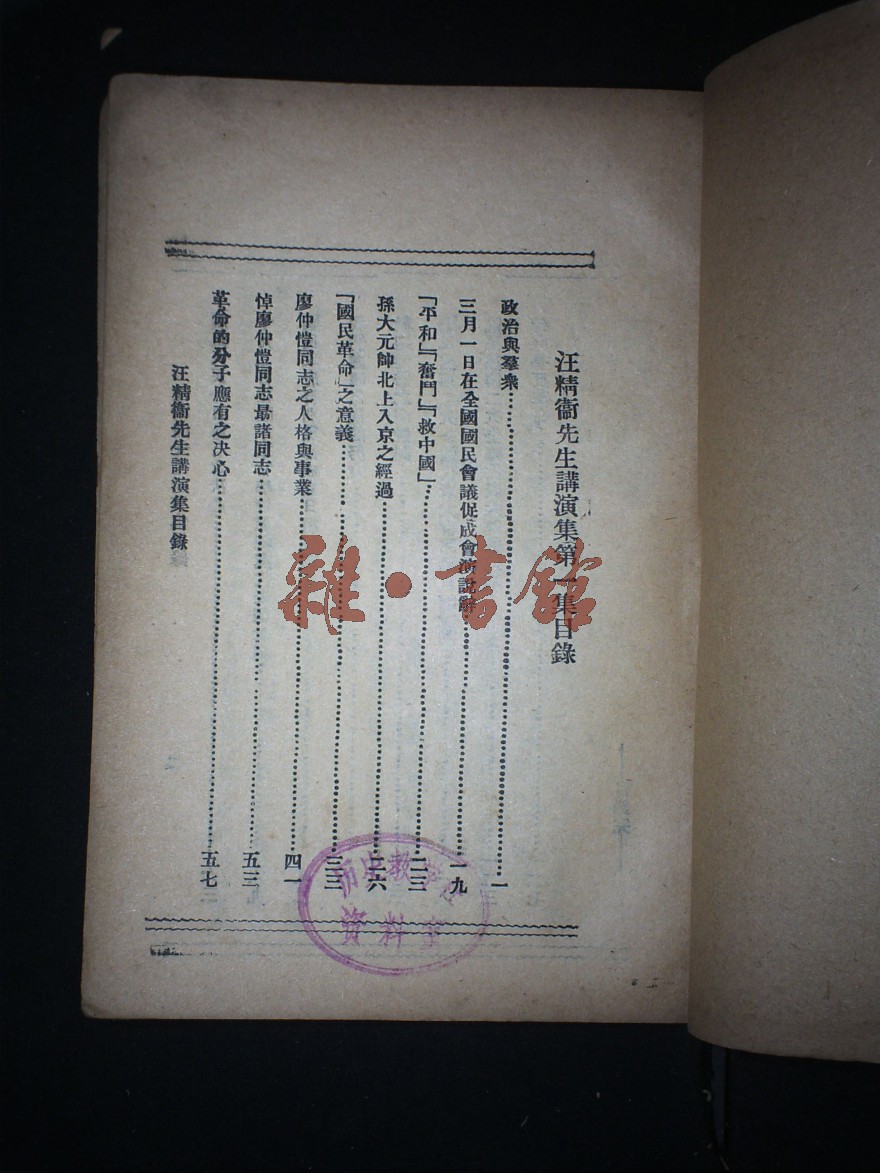 汪精衞先生講演集第一集目錄
政治與羣衆……一
三月一日在全國國民會議促成會演說辭……一九
「平和」「奮鬥」「救中國」……二三
孫大元帥北上入京之經過……二六
「國民革命」之意義……三三
廖仲愷同志之人格與事業……四一
悼廖仲愷同志最諸同志……五三
革命的分子應有之決心……五七
汪精衞先生講演集目錄
雜·書館
資料室